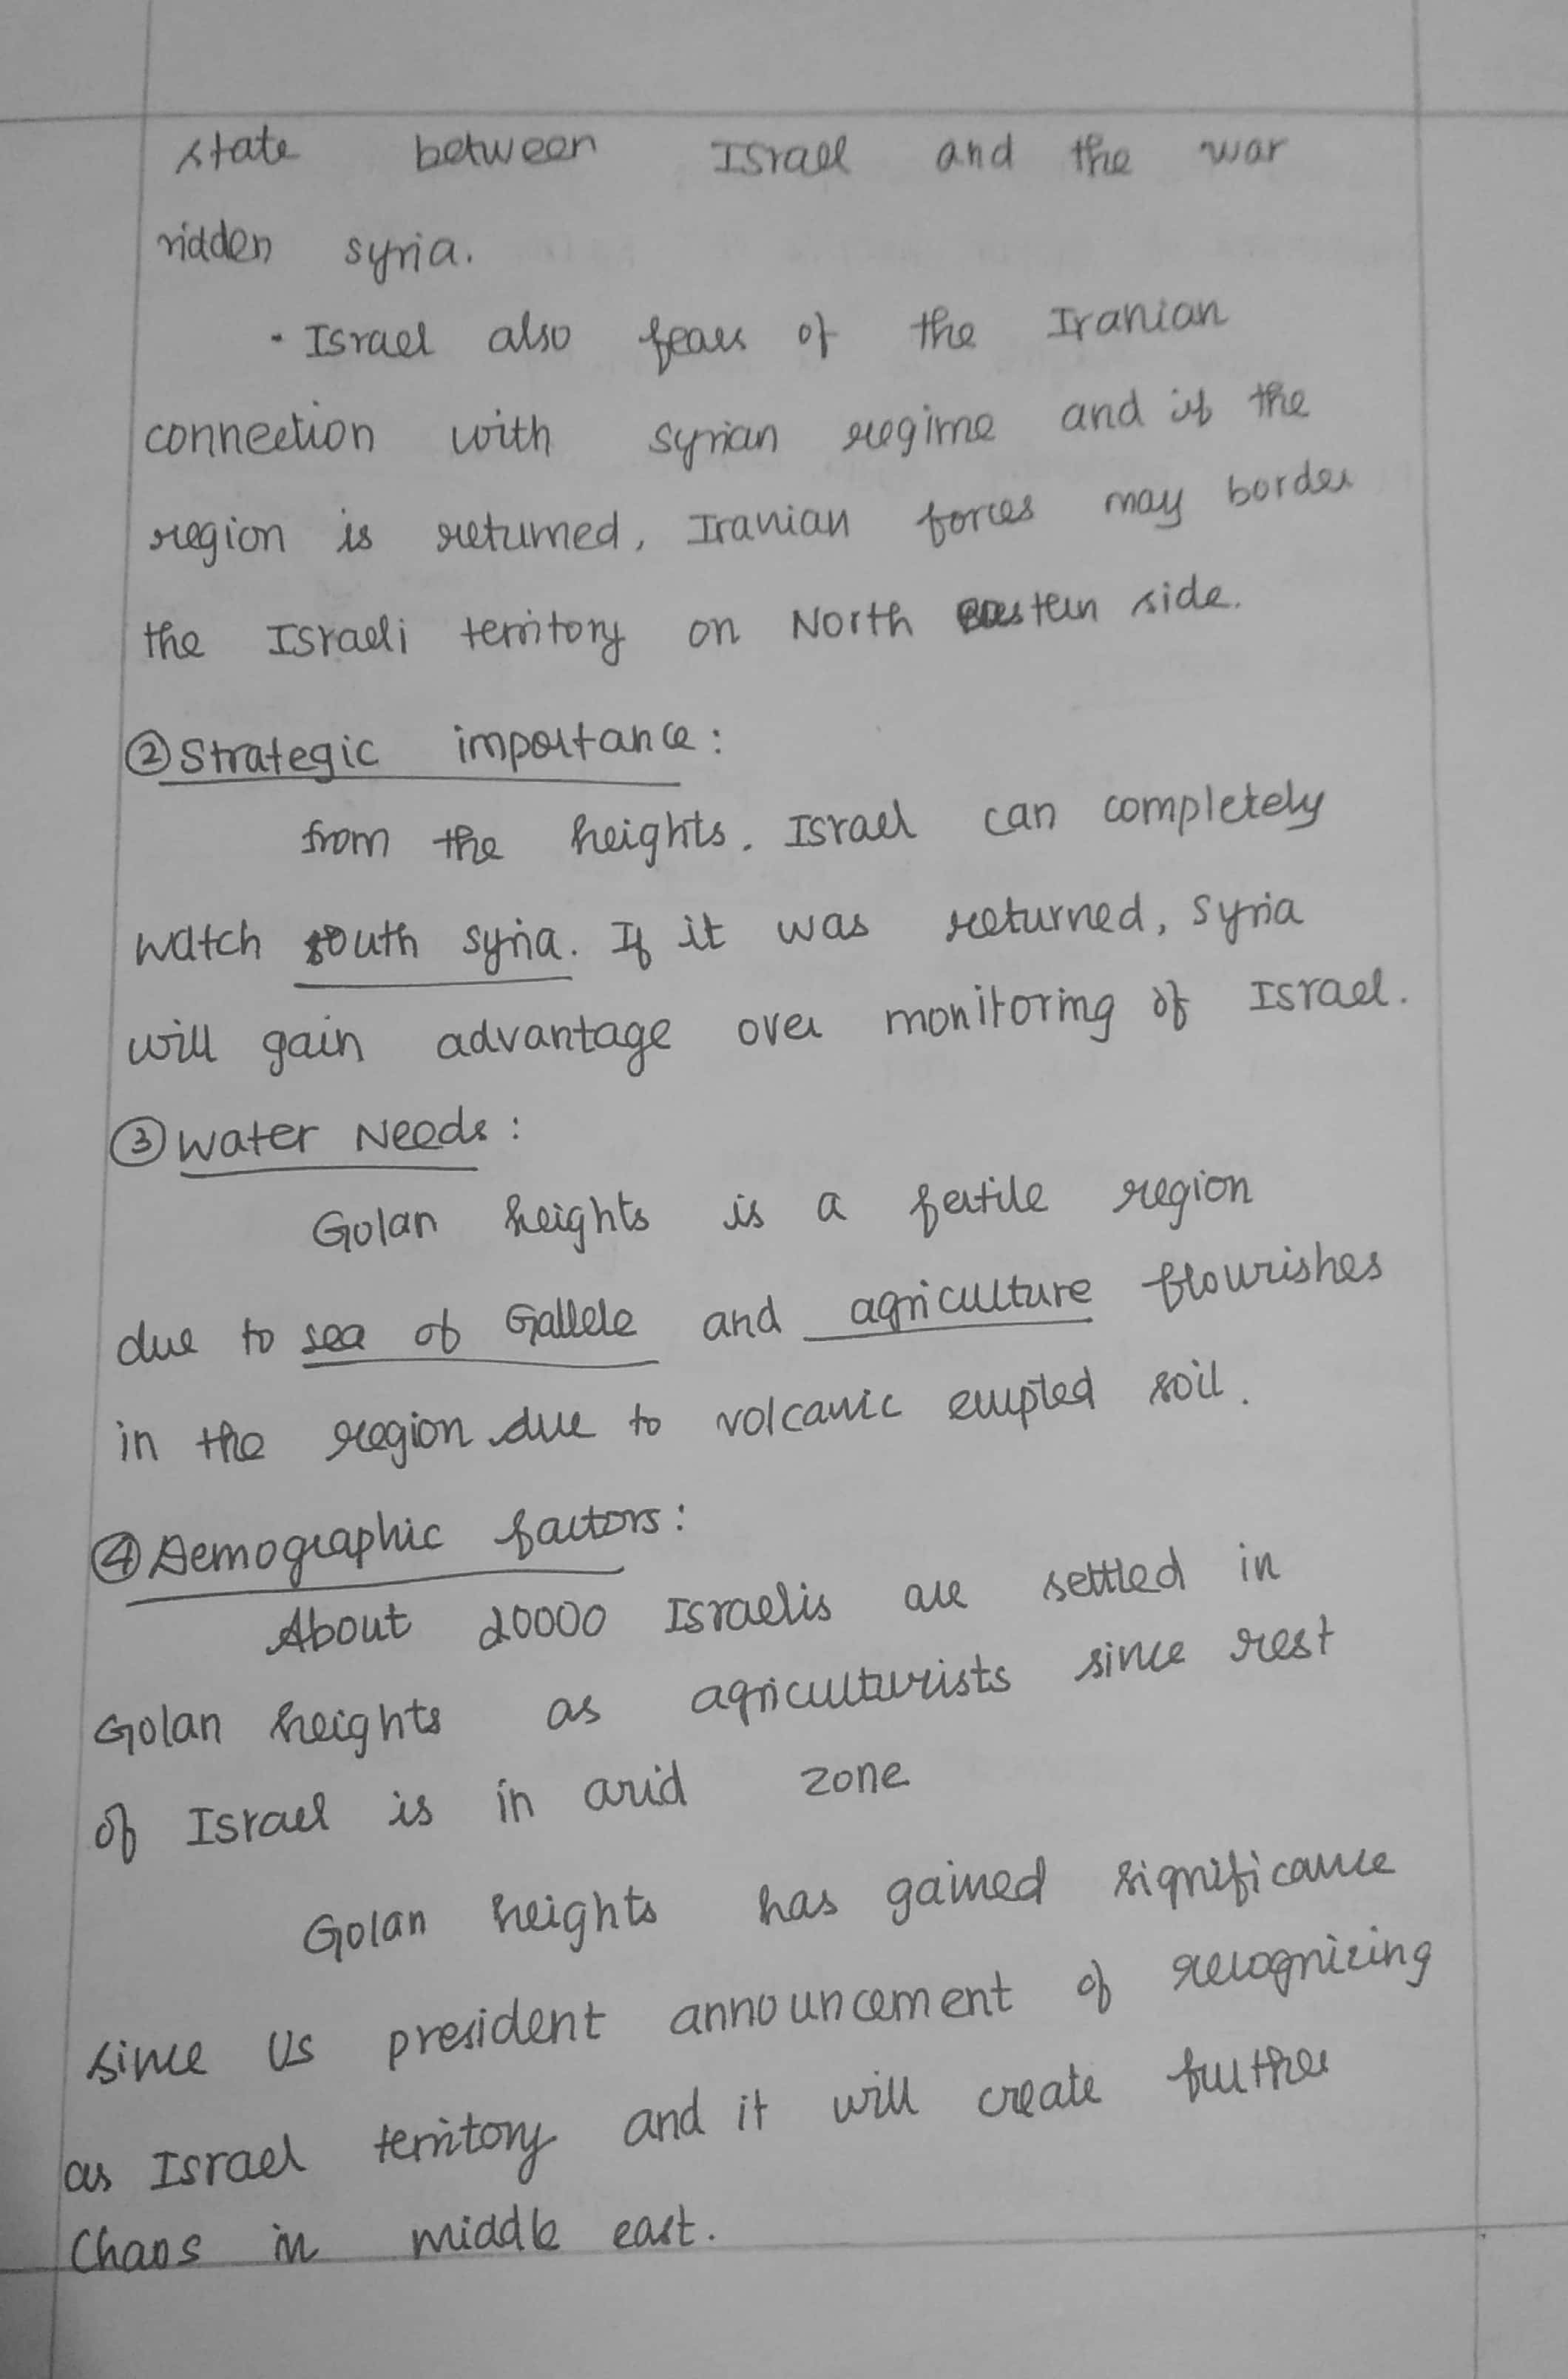 state between Israel and the war
ridden syria.
- Israel also fears of the Iranian
connection with syrian regime and if the
region is returned, Iranian forces may border
the Israeli territory on North eastern side.
② Strategic importance :
from the heights. Israel can completely
watch south syria. If it was returned, syria
will gain advantage over monitoring of Israel.
③ Water Needs :
Golan heights is a fertile region
due to sea of Gallele and agriculture flourishes
in the region due to volcanic erupted soil.
④ Demographic factors :
About 20000 Israelis are settled in
Golan heights as agriculturists since rest
of Israel is in arid zone
Golan heights has gained significance
since US president announcement of recognizing
as Israel territory and it will create further
Chaos in middle east.